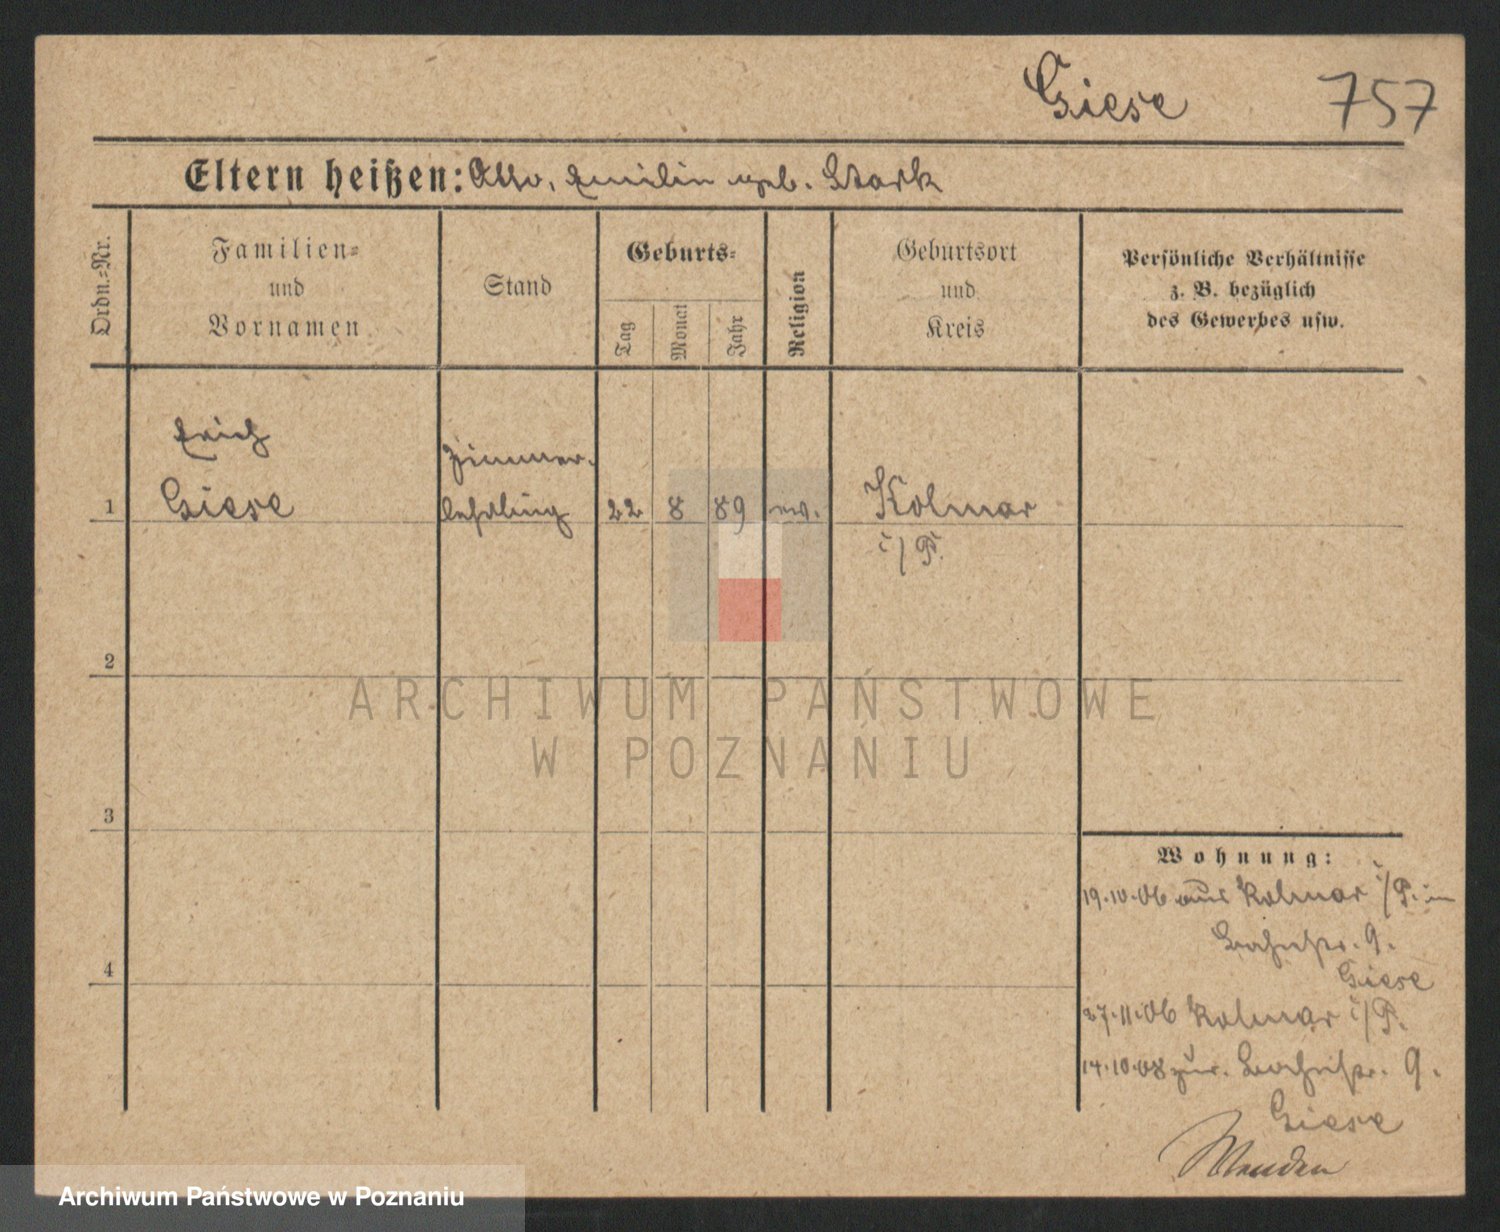 Giese 757
Eltern heißen: Otto, Emilie geb. Stark
Ordn.=Nr.
Familien=
und
Vornamen
Stand
Geburts=
Tag
Monat
Jahr
Religion
Geburtsort
und
Kreis
Persönliche Verhältnisse
z. B. bezüglich
des Gewerbes usw.
Erich
Giese
Zimmer-
lehrling
1 22 8 89 ev. Kolmar
i/P.
2
3
4
ARCHIWUM PAŃSTWOWE
W POZNANIU
Wohnung:
19.10.06 aus Kolmar i/P. in
9.
Giese
27.11.06 Kolmar i/P.
14.10.08 zur. 9.
Giese
Archiwum Państwowe w Poznaniu